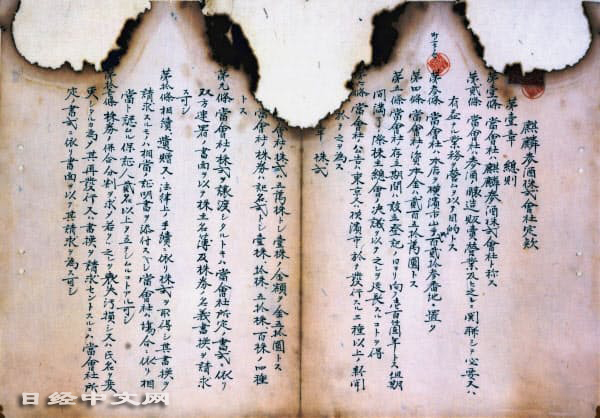 麒麟麦酒株式會社定款
第壹章 總則
第壹條 當會社ハ麒麟麦酒株式會社ト称ス
第貳條 當會社ハ麦酒醸造販賣營業及ヒ之ニ関聯シテ必要又ハ
有益ナル業務ヲ營ムヲ以テ目的トス
第参條 當會社ハ本店ヲ横濱市山手町百貳拾参番地ニ置ク
第四條 當會社ノ資本金ハ貳百五拾萬圓トス
第五條 當會社存立期間ハ設立登記ノ日ヨリ向フ満百箇年トス但期
間満了ノ際株主總會ノ決議ヲ以テ之ヲ延長スルコトヲ得
第六條 當會社ノ公告ハ東京又ハ横濱市ニ於テ發行スル二種以上ノ新聞
紙ニ於テ之ヲ為ス
株式
會社ノ株式ハ五萬株トシ壹株ノ金額ヲ金五拾圓トス
當會社ノ株券ハ記名式トシ壹株 拾株 五拾株 百株ノ四種
トス
第九條 當會社ノ株式ヲ譲渡シタルトキハ當會社所定ノ書式ニ依リ
双方連署ノ書面ヲ以テ株主名簿及株券ノ名義書換ヲ請求
スヘシ
第拾條 相續遺贈又ハ法律ノ手續ニ依リ株式ヲ取得シ其書換ヲ
請求スルモノハ相當ノ証明書ヲ添付スヘシ當會社ハ場合ニ依リ相
當ト認ムル保証人貳名以上ヲ立テシムルコトアルヘシ
株券ノ併合分割ヲ求メ若クハ之ヲ毀失汚損シ又ハ氏名ヲ変
更シタル為メ其再發行又ハ書換ヲ請求セントスルモノハ當會社所
定ノ書式ニ依ル書面ヲ以テ其請求ヲ為スヘシ
日经中文网